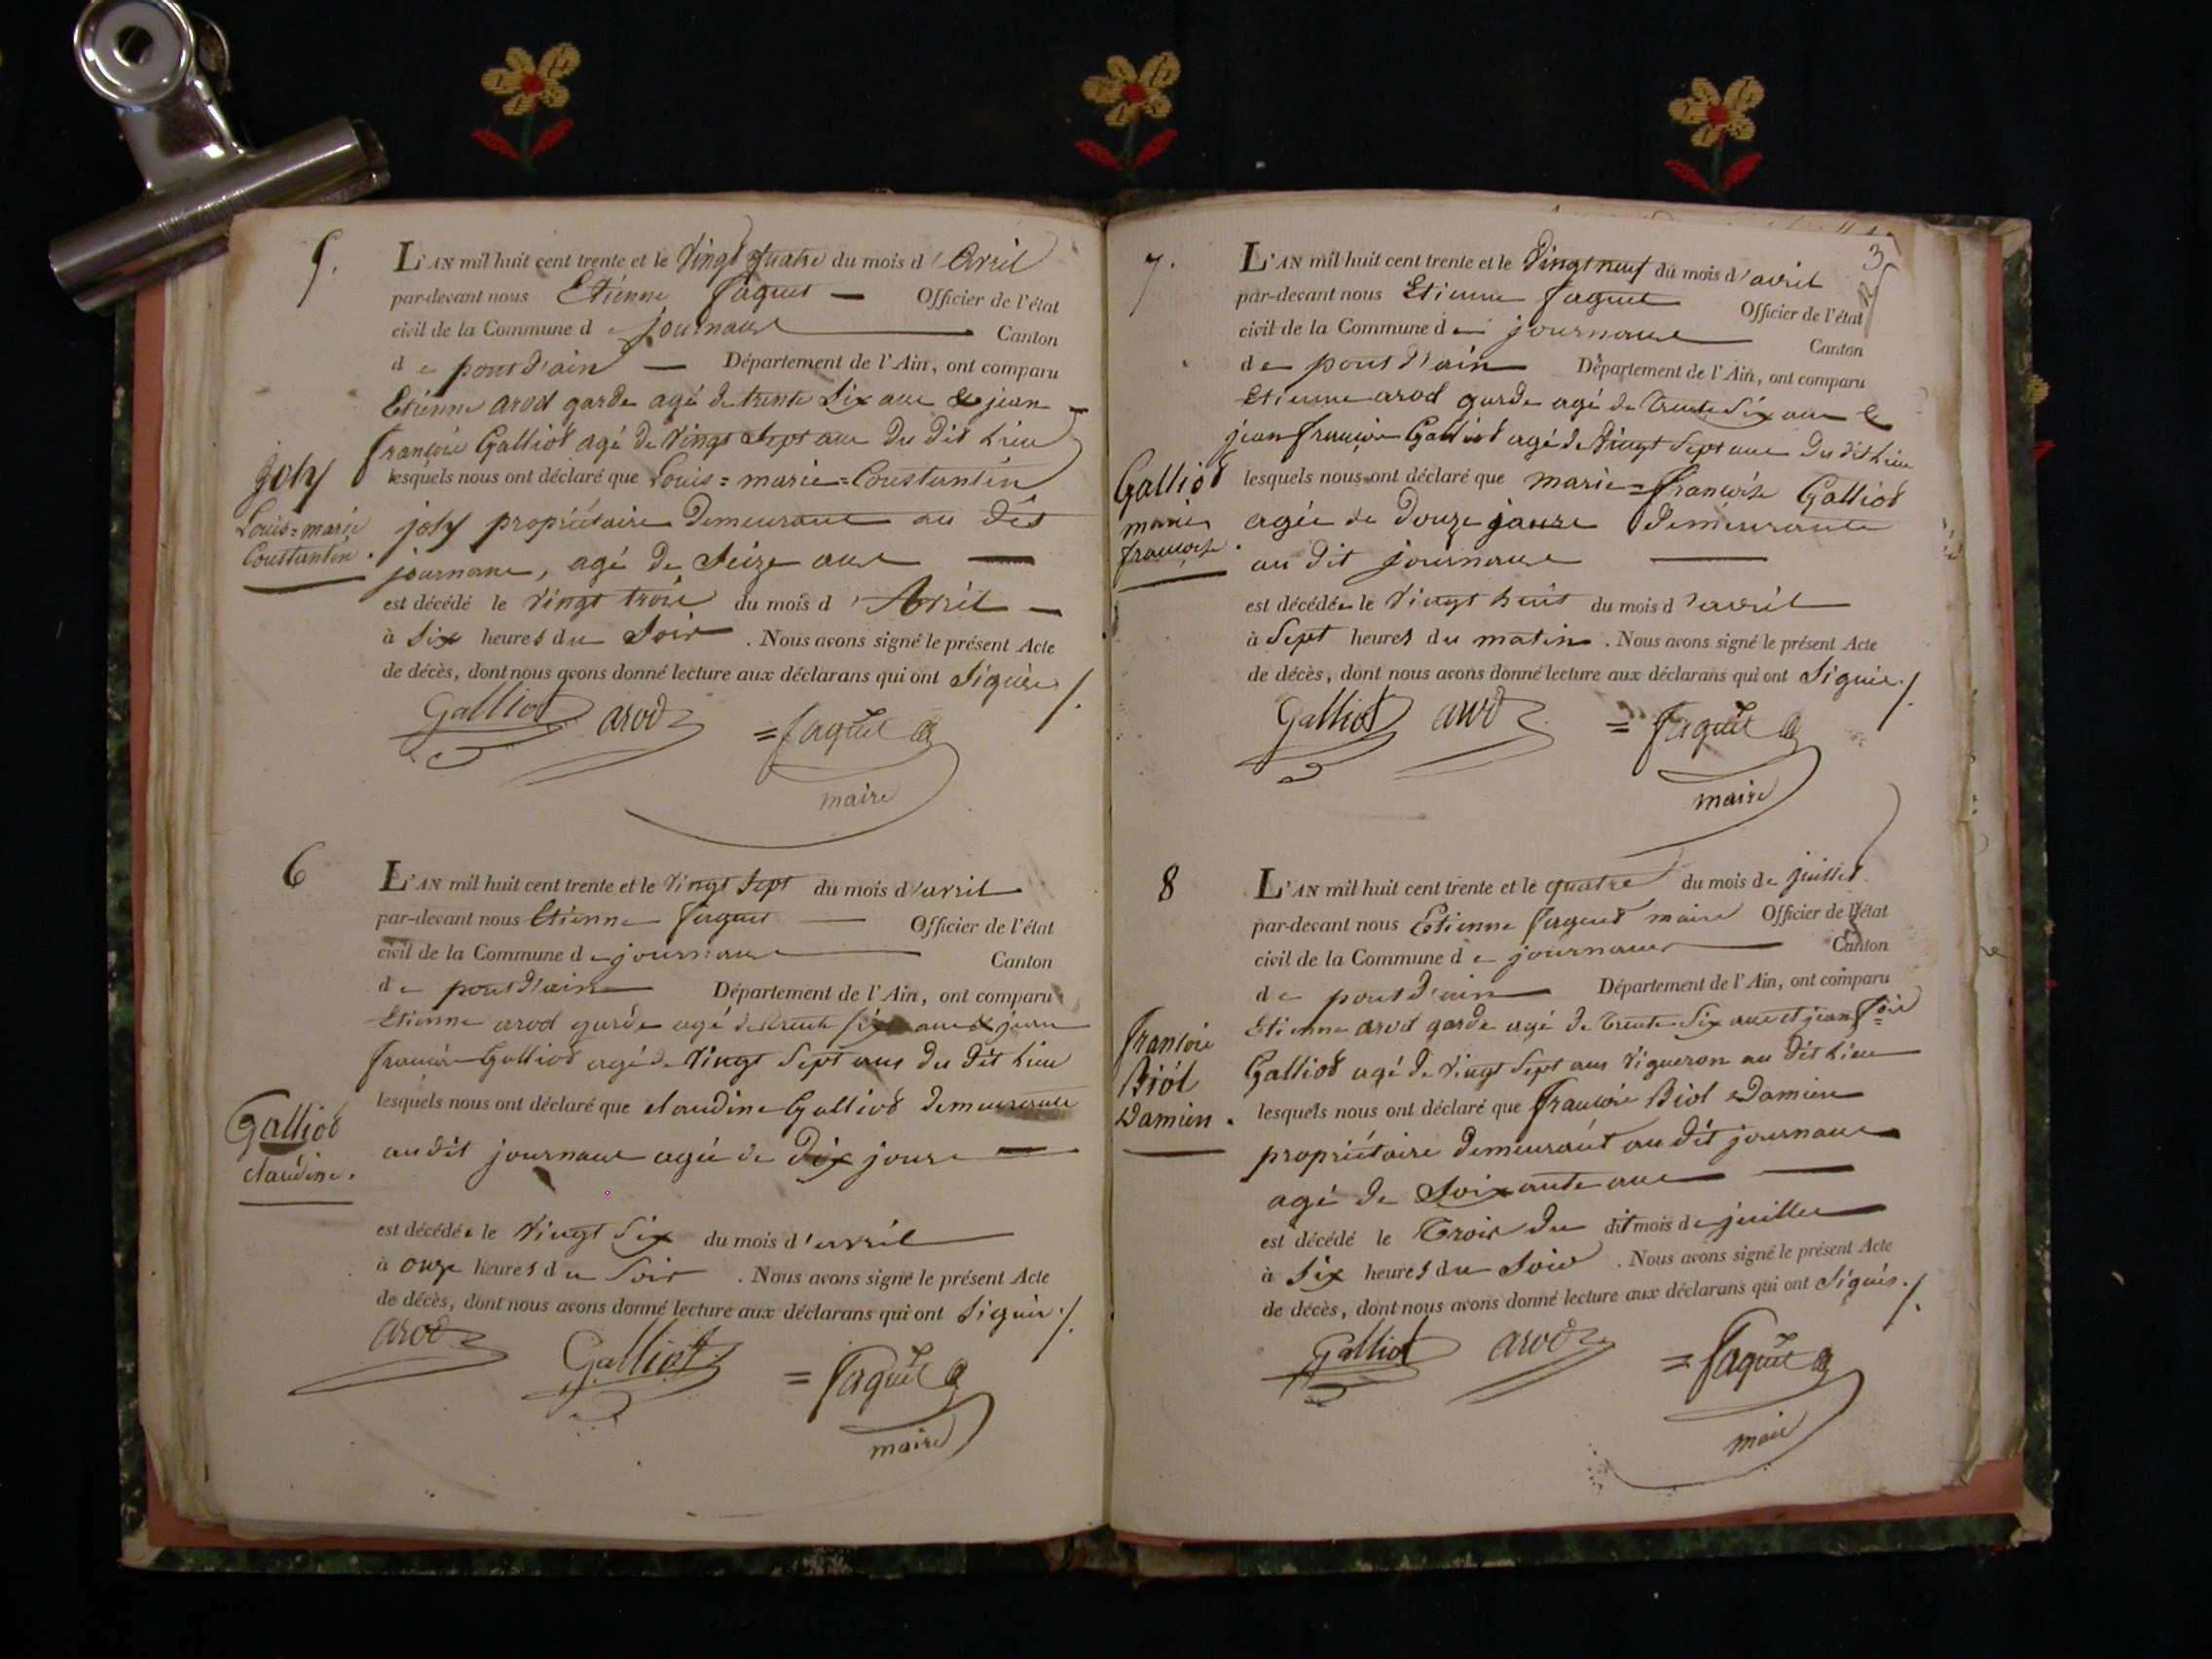 5.
L'AN mil huit cent trente et le Vingt quatre du mois d'Avril
par-devant nous Etienne faguet — Officier de l'état
civil de la Commune de journans — Canton
de pont d'ain — Département de l'Ain, ont comparu
Etienne arod garde agé de trente Six ans & jean
françois Galliod agé de Vingt Sept ans du dit Lieu
lesquels nous ont déclaré que Louis = marie = Constantin
joly
Louis = marie
Constantin.
joly propriétaire demeurant au dit
journans, agé de Seize ans —
est décédé le Vingt trois du mois d'Avril —
à Six heures du Soir . Nous avons signé le présent Acte
de décès, dont nous avons donné lecture aux déclarans qui ont Signés ./.
Galliod arod = faguet
maire
6
L'AN mil huit cent trente et le Vingt Sept du mois d'avril
par-devant nous Etienne faguet — Officier de l'état
civil de la Commune de journans — Canton
de pont d'ain Département de l'Ain, ont comparu
Etienne arod garde agé de trente Six ans & jean
françois Galliod agé de Vingt Sept ans du dit Lieu
lesquels nous ont déclaré que claudine Galliod demeurante
Galliod
claudine.
audit journans agée de Dix jours —
est décédée le Vingt Six du mois d'avril
à onze heures du Soir . Nous avons signé le présent Acte
de décès, dont nous avons donné lecture aux déclarans qui ont Signés ./.
arod Galliod = faguet
maire
3
7.
L'AN mil huit cent trente et le Vingt neuf du mois d'avril
par-devant nous Etienne faguet Officier de l'état
civil de la Commune de journans Canton
de pont d'ain Département de l'Ain, ont comparu
Etienne arod garde agé de trente Six ans &
jean françois Galliod agé de Vingt Sept ans du dit Lieu
lesquels nous ont déclaré que marie = françoise Galliod
Galliod
marie
françoise.
agée de douze jours demeurante
au dit journans —
est décédée le Vingt huit du mois d'avril
à Sept heures du matin . Nous avons signé le présent Acte
de décès, dont nous avons donné lecture aux déclarans qui ont Signés ./.
Galliod arod = faguet
maire
8
L'AN mil huit cent trente et le quatre du mois de juillet
par-devant nous Etienne faguet maire Officier de l'état
civil de la Commune de journans — Canton
de pont d'ain Département de l'Ain, ont comparu
Etienne arod garde agé de trente Six ans et jean fois
Galliod agé de Vingt Sept ans Vigneron au dit Lieu
lesquels nous ont déclaré que françois Biol Damien
françois
Biol
Damien.
propriétaire demeurant au dit journans
agé de Soixante ans —
est décédé le Trois du dit mois de juillet
à Six heures du Soir . Nous avons signé le présent Acte
de décès, dont nous avons donné lecture aux déclarans qui ont Signés ./.
Galliod arod = faguet
maire